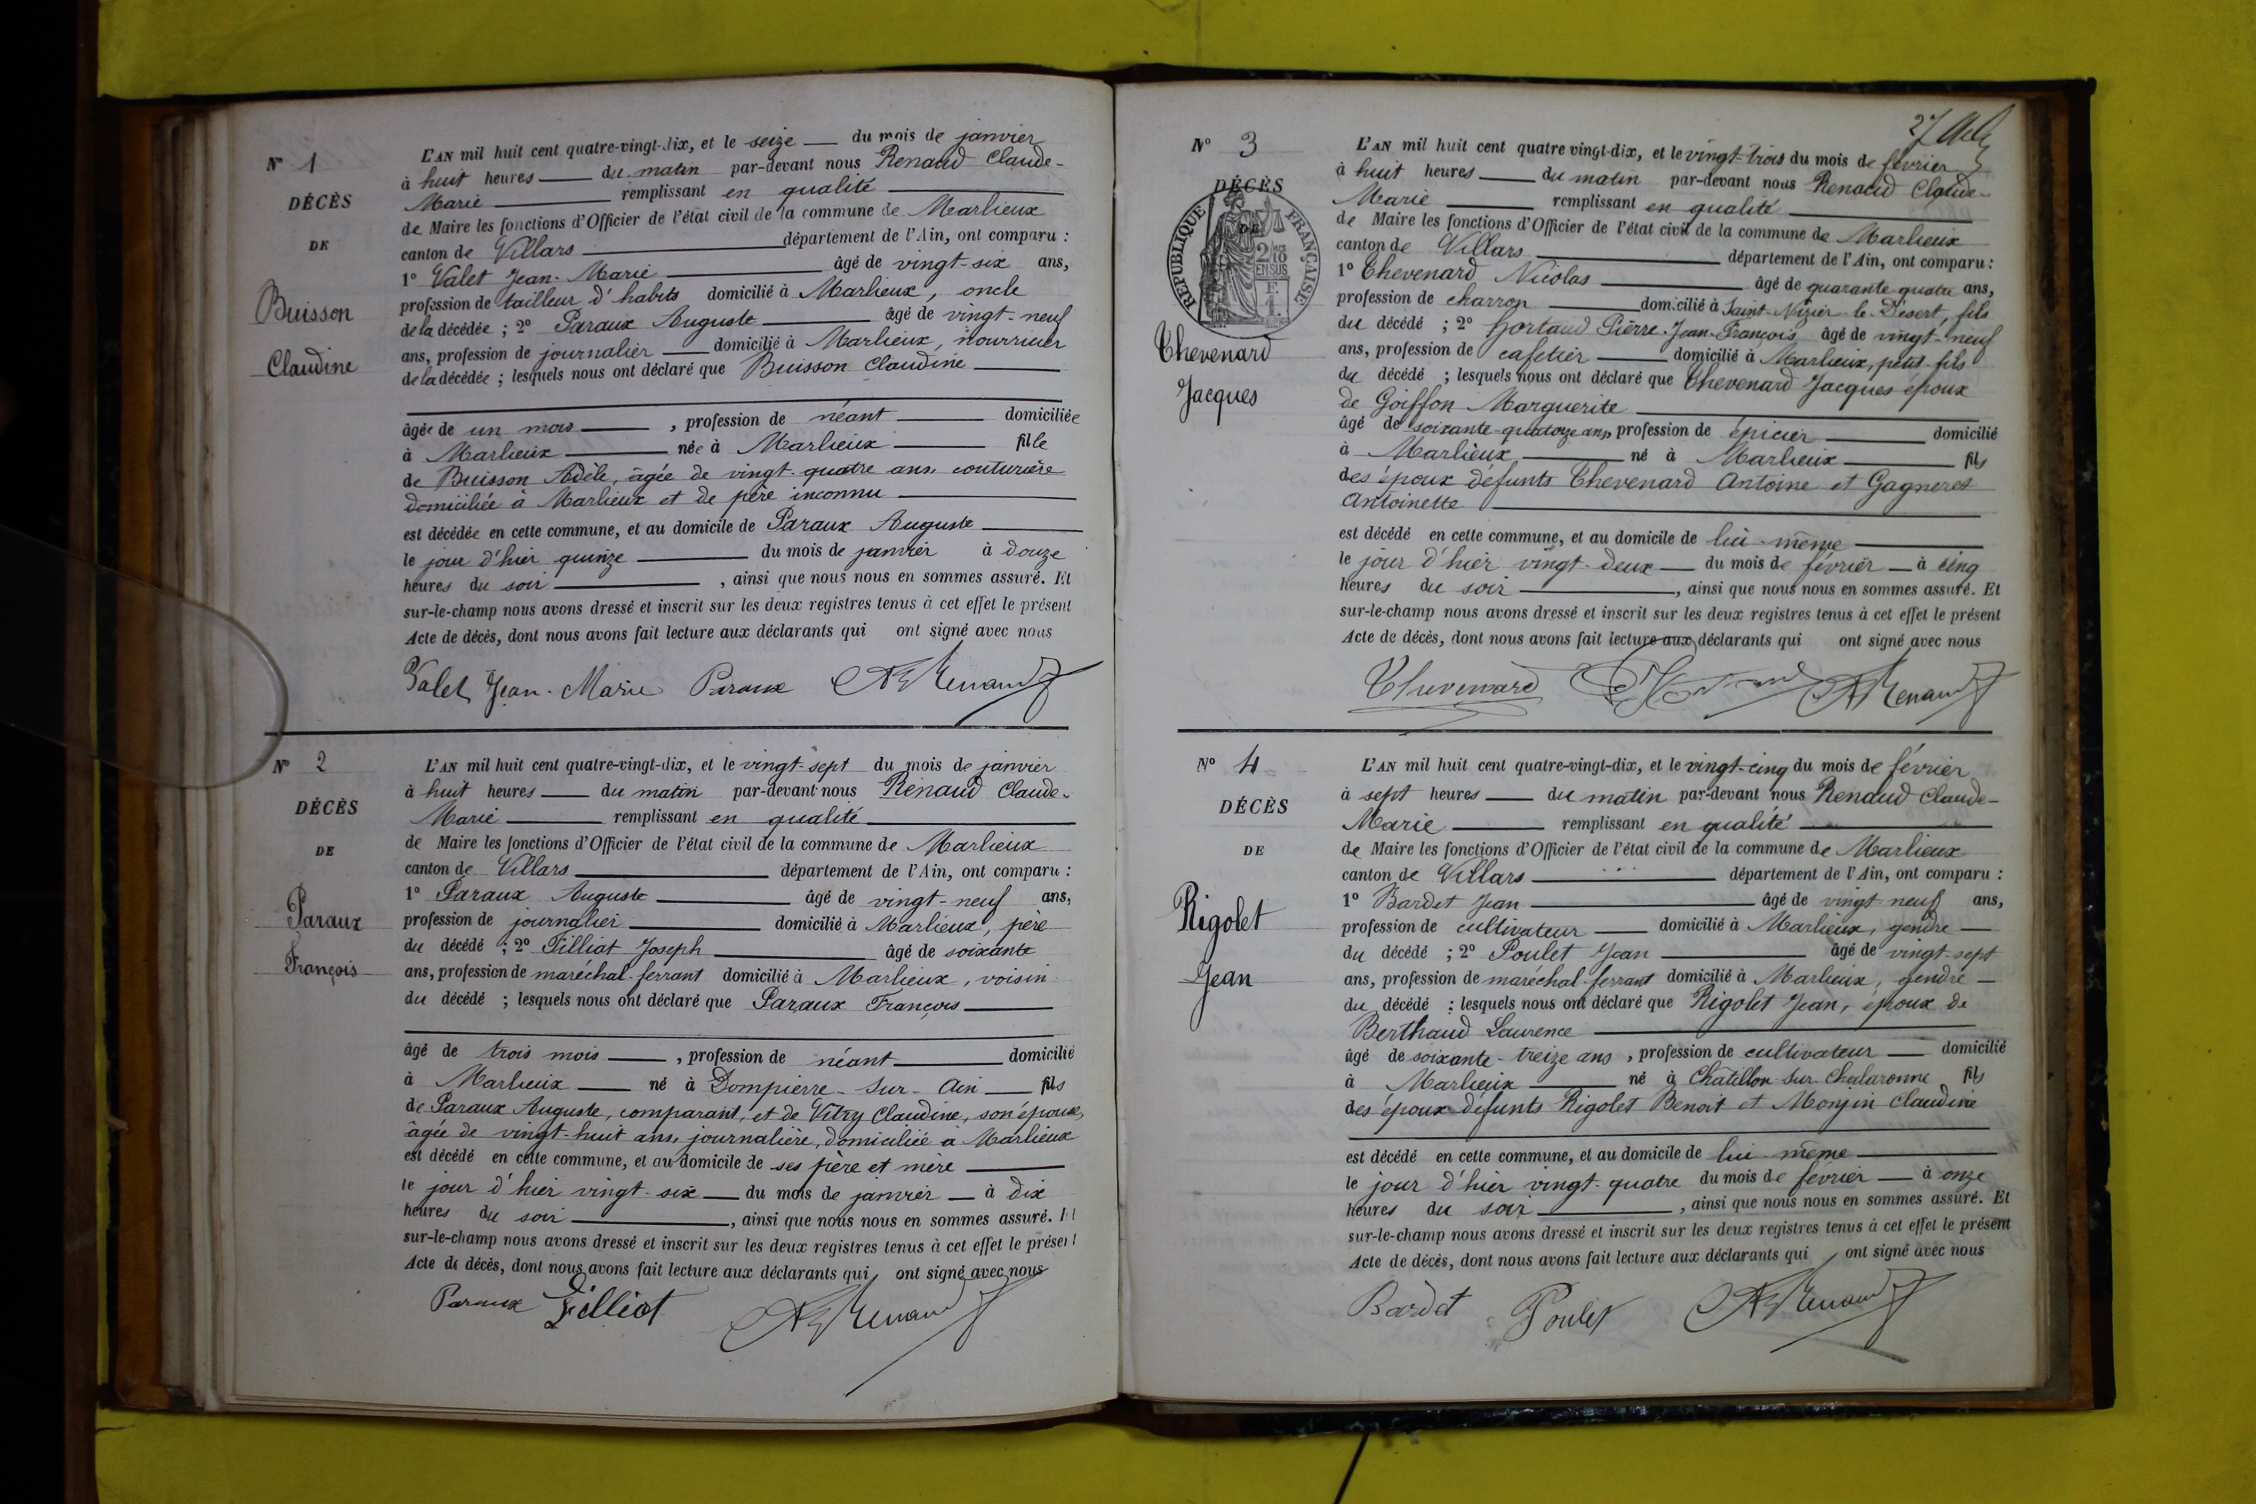 N° 1
DÉCÈS
DE
Buisson
Claudine
L'AN mil huit cent quatre-vingt-dix, et le seize du mois de janvier
à huit heures du matin par-devant nous Renaud Claude-
Marie remplissant en qualité
de Maire les fonctions d'Officier de l'état civil de la commune de Marlieux
canton de Villars département de l'Ain, ont comparu :
1° Valet Jean-Marie âgé de vingt-six ans,
profession de tailleur d'habits domicilié à Marlieux, oncle
de la décédée ; 2° Paraux Auguste âgé de vingt-neuf
ans, profession de journalier domicilié à Marlieux, nourricier
de la décédée ; lesquels nous ont déclaré que Buisson Claudine
âgée de un mois , profession de néant domiciliée
à Marlieux née à Marlieux fille
de Buisson Adèle, âgée de vingt-quatre ans, couturière
domiciliée à Marlieux et de père inconnu
est décédée en cette commune, et au domicile de Paraux Auguste
le jour d'hier quinze du mois de janvier à douze
heures du soir , ainsi que nous nous en sommes assuré. Et
sur-le-champ nous avons dressé et inscrit sur les deux registres tenus à cet effet le présent
Acte de décès, dont nous avons fait lecture aux déclarants qui ont signé avec nous
Valet Jean-Marie Paraux Renaud
N° 2
DÉCÈS
DE
Paraux
François
L'AN mil huit cent quatre-vingt-dix, et le vingt-sept du mois de janvier
à huit heures du matin par-devant nous Renaud Claude-
Marie remplissant en qualité
de Maire les fonctions d'Officier de l'état civil de la commune de Marlieux
canton de Villars département de l'Ain, ont comparu :
1° Paraux Auguste âgé de vingt-neuf ans,
profession de journalier domicilié à Marlieux, père
du décédé ; 2° Filliat Joseph âgé de soixante
ans, profession de maréchal-ferrant domicilié à Marlieux, voisin
du décédé ; lesquels nous ont déclaré que Paraux François
âgé de trois mois , profession de néant domicilié
à Marlieux né à Dompierre-sur-Ain fils
de Paraux Auguste, comparant, et de Vitry Claudine, son épouse,
âgée de vingt-huit ans, journalière, domiciliée à Marlieux
est décédé en cette commune, et au domicile de ses père et mère
le jour d'hier vingt-six du mois de janvier à dix
heures du soir , ainsi que nous nous en sommes assuré. Et
sur-le-champ nous avons dressé et inscrit sur les deux registres tenus à cet effet le présent
Acte de décès, dont nous avons fait lecture aux déclarants qui ont signé avec nous
Paraux Filliat Renaud
27
N° 3
DÉCÈS
DE
RÉPUBLIQUE FRANÇAISE
2/10 EN SUS
Thevenard
Jacques
L'AN mil huit cent quatre vingt-dix, et le vingt-trois du mois de février
à huit heures du matin par-devant nous Renaud Claude-
Marie remplissant en qualité
de Maire les fonctions d'Officier de l'état civil de la commune de Marlieux
canton de Villars département de l'Ain, ont comparu :
1° Thevenard Nicolas âgé de quarante-quatre ans,
profession de charron domicilié à Saint-Nizier-le-Désert, fils
du décédé ; 2° Hortaud Pierre-Jean-François âgé de vingt-neuf
ans, profession de cafetier domicilié à Marlieux, petit-fils
du décédé ; lesquels nous ont déclaré que Thevenard Jacques époux
de Goiffon Marguerite
âgé de soixante-quatorze ans, profession de épicier domicilié
à Marlieux né à Marlieux fils
des époux défunts Thevenard Antoine et Gagneres
Antoinette
est décédé en cette commune, et au domicile de lui-même
le jour d'hier vingt-deux du mois de février à cinq
heures du soir , ainsi que nous nous en sommes assuré. Et
sur-le-champ nous avons dressé et inscrit sur les deux registres tenus à cet effet le présent
Acte de décès, dont nous avons fait lecture aux déclarants qui ont signé avec nous
Thevenard Renaud
N° 4
DÉCÈS
DE
Rigolet
Jean
L'AN mil huit cent quatre-vingt-dix, et le vingt-cinq du mois de février
à sept heures du matin par-devant nous Renaud Claude-
Marie remplissant en qualité
de Maire les fonctions d'Officier de l'état civil de la commune de Marlieux
canton de Villars département de l'Ain, ont comparu :
1° Bardet Jean âgé de vingt neuf ans,
profession de cultivateur domicilié à Marlieux, gendre
du décédé ; 2° Poulet Jean âgé de vingt-sept
ans, profession de maréchal-ferrant domicilié à Marlieux, gendre
du décédé ; lesquels nous ont déclaré que Rigolet Jean, époux de
Berthaud Laurence
âgé de soixante-treize ans , profession de cultivateur domicilié
à Marlieux né à Châtillon-sur-Chalaronne fils
des époux défunts Rigolet Benoit et Monjin Claudine
est décédé en cette commune, et au domicile de lui-même
le jour d'hier vingt-quatre du mois de février à onze
heures du soir , ainsi que nous nous en sommes assuré. Et
sur-le-champ nous avons dressé et inscrit sur les deux registres tenus à cet effet le présent
Acte de décès, dont nous avons fait lecture aux déclarants qui ont signé avec nous
Bardet Poulet Renaud